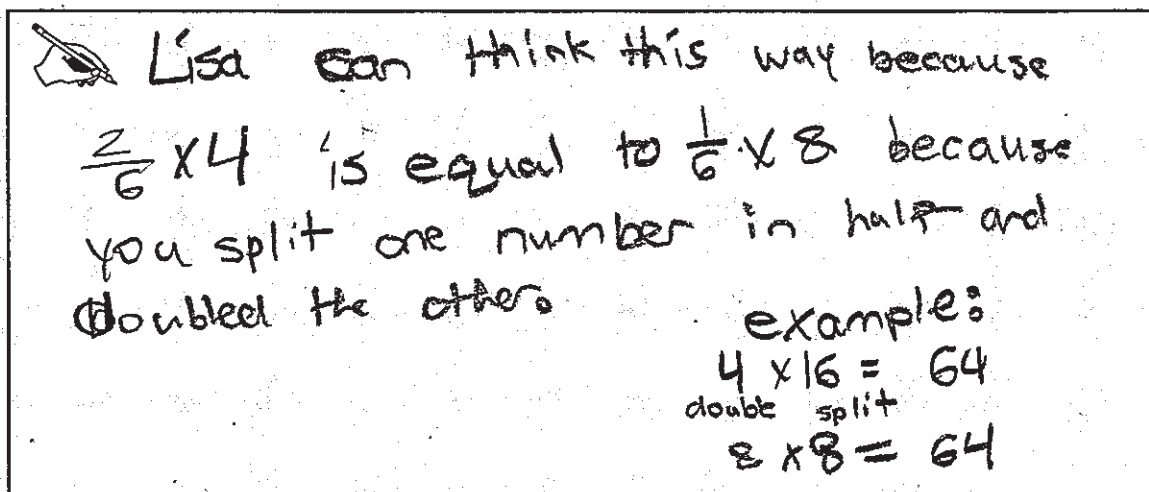 Lisa can think this way because
2/6 x 4 is equal to 1/6 x 8 because
you split one number in half and
doubled the other.
example:
4 x 16 = 64
double split
8 x 8 = 64